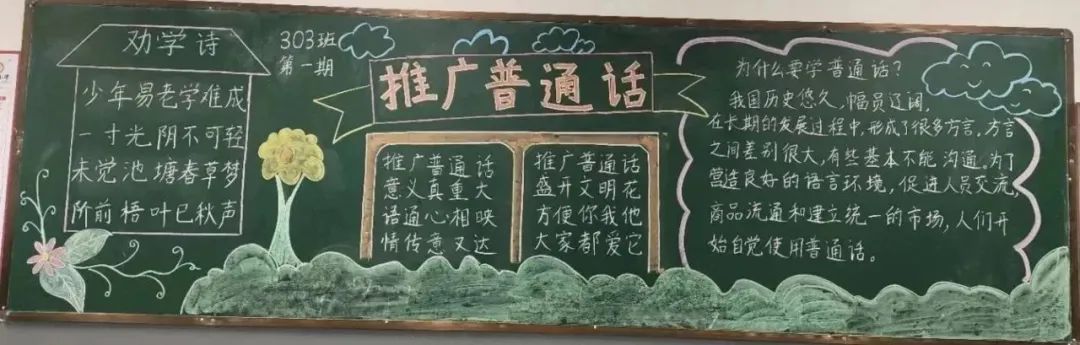 劝学诗
少年易老学难成
一寸光阴不可轻
未觉池塘春草梦
阶前梧叶已秋声
303班
第一期
推广普通话
推广普通话
意义真重大
语通心相映
情传意又达
推广普通话
盛开文明花
方便你我他
大家都爱它
为什么要学普通话?
我国历史悠久,幅员辽阔,
在长期的发展过程中,形成了很多方言,方言
之间差别很大,有些基本不能沟通。为了
营造良好的语言环境,促进人员交流,
商品流通和建立统一的市场,人们开
始自觉使用普通话。